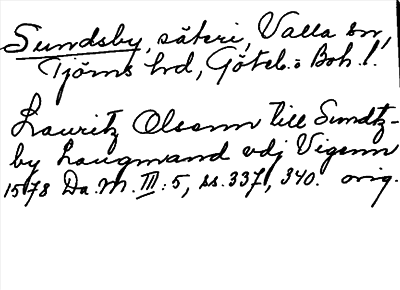 Sundsby, säteri, Valla sn,
Tjörns hd, Göteb.o Boh. l.
Lauritz Olssnn till Sundtz-
by Laugmand vdj Vigenn
1578 Da. M. III: 5, ss. 337, 340. orig.